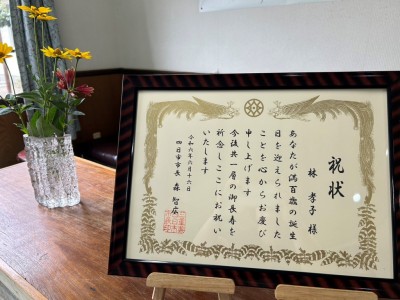 祝状
林 孝子 様
あなたが満百歳の誕生
日を迎えられました
ことを心からお慶び
申し上げます
今後共一層の御長寿を
祈念しここにお祝い
いたします
令和六年六月十六日
四日市市長 森 智広